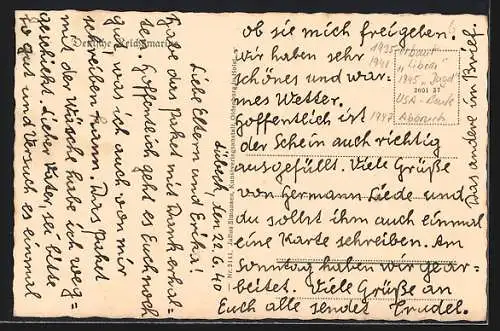 Deutsche Reichsmarine
Lübeck, den 22.6.40
Liebe Eltern und Erika!
Habe das Paket mit Dank erhal-
ten. Hoffentlich geht es Euch noch
gut, was ich auch von mir
schreiben kann. Das Paket
mit der Wäsche habe ich weg-
geschickt. Lieber Vater, sei bitte
so gut und versuch es einmal
ob sie mich freigeben!
Wir haben sehr
schönes und war-
mes Wetter.
Hoffentlich ist
der Schein auch richtig
ausgefüllt. Viele Grüße
von Hermann Liede und
du sollst ihm auch einmal
eine Karte schreiben. Am
Sonntag haben wir gear-
beitet. Viele Grüße an
Euch alle sendet Trudel.
Das andere im Brief.
1935 erbaut
1941
1945 "Jagd"
2601 37
USA-Beute
1947 Abbruch
Julius Simonsen, Kunstverlagsanstalt, Oldenburg in Holst.